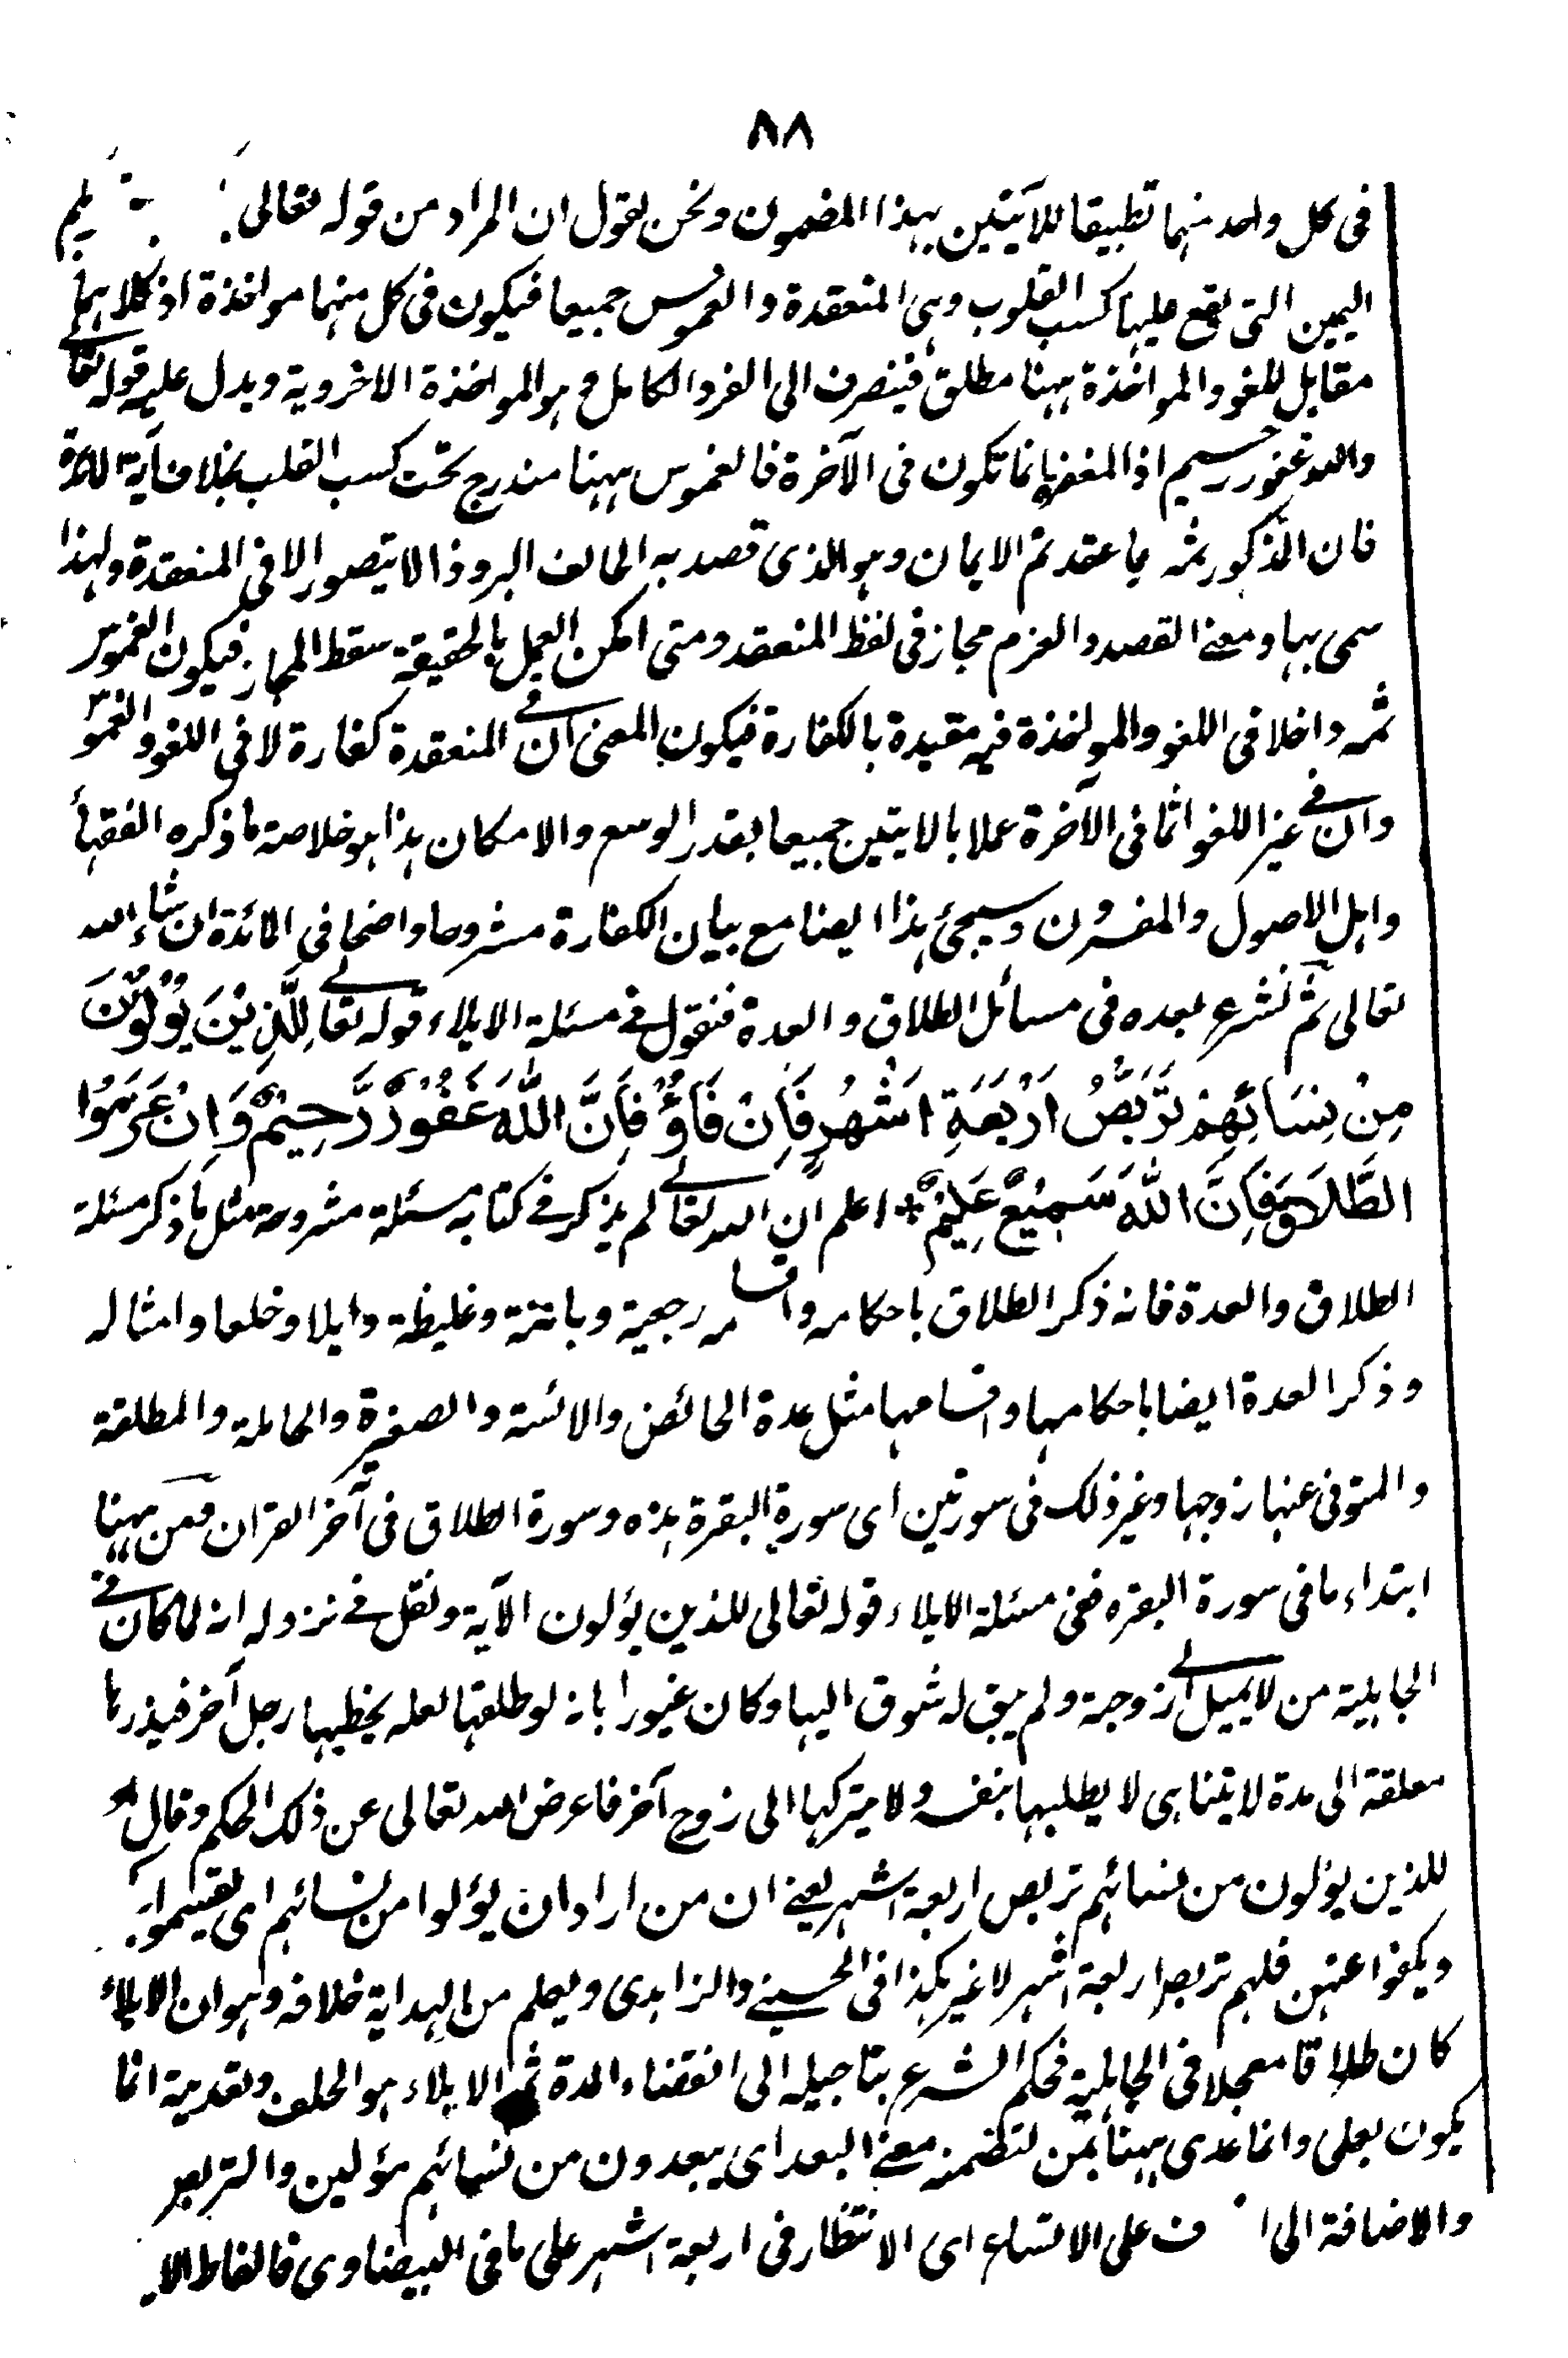 ٨٨
فى كل واحد منهما تطبيقا للآيتين بهذا المضمون ونحن نقول ان المراد من قوله تعالى
اليمين التى يقع عليها كسب القلوب وهى المنعقدة والغموس جميعا فيكون فى كل منهما مواخذة اذ كلاهما
مقابل للغو والمواخذة ههنا مطلق فينصرف الى الفرد الكامل و هو المواخذة الاخروية ويدل عليه قوله تعالے
والله غفور رحيم اذ المغفرة انما تكون فى الآخرة فالغموس ههنا مندرج تحت كسب القلب بخلاف آية المائدة
فان المذكور ثمه بما عقدتم الايمان وهو الذى قصد به الحالف البر وذا لا يتصور الا فى المنعقدة ولهذا
سمى بها ومعنے القصد والعزم مجاز فى لفظ المنعقد ومتى امكن العمل بالحقيقة سقط المجاز فيكون الغموس
ثمه داخلا فى اللغو والمواخذة فيه مقيدة بالكفارة فيكون المعنى ان فے المنعقدة كفارة لا فى اللغو والغموس
وان فے غير اللغو اثما فى الآخرة عملا بالايتين جميعا بقدر الوسع والامكان هذا هو خلاصة ما ذكره الفقهأ
واهل الاصول والمفسرون وسيجئ هذا ايضا مع بيان الكفارة مشروحا واضحا فى المائدة ان شاء الله
تعالى ثم نشرع بعده فى مسائل الطلاق والعدة فنقول فے مسئلة الايلاء قوله تعالے لِلَّذِيْنَ يُؤْلُوْنَ
مِنْ نِسَائِهِمْ تَرَبُّصُ اَرْبَعَةِ اَشْهُرٍ فَاِنْ فَاؤُ فَاِنَّ اللّٰهَ غَفُوْرٌ رَّحِيْمٌ وَ اِنْ عَزَمُوا
الطَّلَاقَ فَاِنَّ اللّٰهَ سَمِيْعٌ عَلِيْمٌ * اعلم ان الله تعالے لم يذكر فے كتابه مسئلة مشروحة مثل ما ذكر مسئلة
الطلاق والعدة فانه ذكر الطلاق باحكامه واقسامه رجعية وبائنة وغليظة وايلا وخلعا وامثاله
وذكر العدة ايضا باحكامها واقسامها مثل عدة الحائض والائسة والصغيرة والحاملة والمطلقة
والمتوفى عنها زوجها وغير ذلك فى سورتين اى سورة البقرة هذه وسورة الطلاق فى آخر القران فمن ههنا
ابتداء ما فى سورة البقره ففى مسئلة الايلاء قوله تعالى للذين يؤلون الآية ونقل فے نزوله انه لما كان فے
الجاهلية من لا يميل الے زوجة ولم يبق له شوق اليها وكان غيورا بانه لو طلقها لعله يخطبها رجل آخر فيذرها
معلقة الى مدة لا يتناهى لا يطلبها بنفسه ولا يتركها الى زوج آخر فاعرض الله تعالى عن ذلك الحكم وقال
للذين يؤلون من نسائهم تربص اربعة اشهر يعنے ان من اراد ان يؤلوا من نسائهم اى يقيموا
ويكفوا عنهن فلهم تربص اربعة اشهر لا غير هكذا فى الحسينے والزاهدى ويعلم من الهداية خلافه وهو ان الايلاء
كان طلاقا معجلا فى الجاهلية فحكم الشرع بتاجيله الى انقضاء المدة ثم الايلاء هو الحلف وتعديته انما
يكون بعلى وانما عدى ههنا بمن لتضمنه معنے البعد اى يبعدون من نسائهم مؤلين والتربص
والاضافة الى على الاتساع اى الانتظار فى اربعة اشهر على ما فى البيضاوى فالفاظ